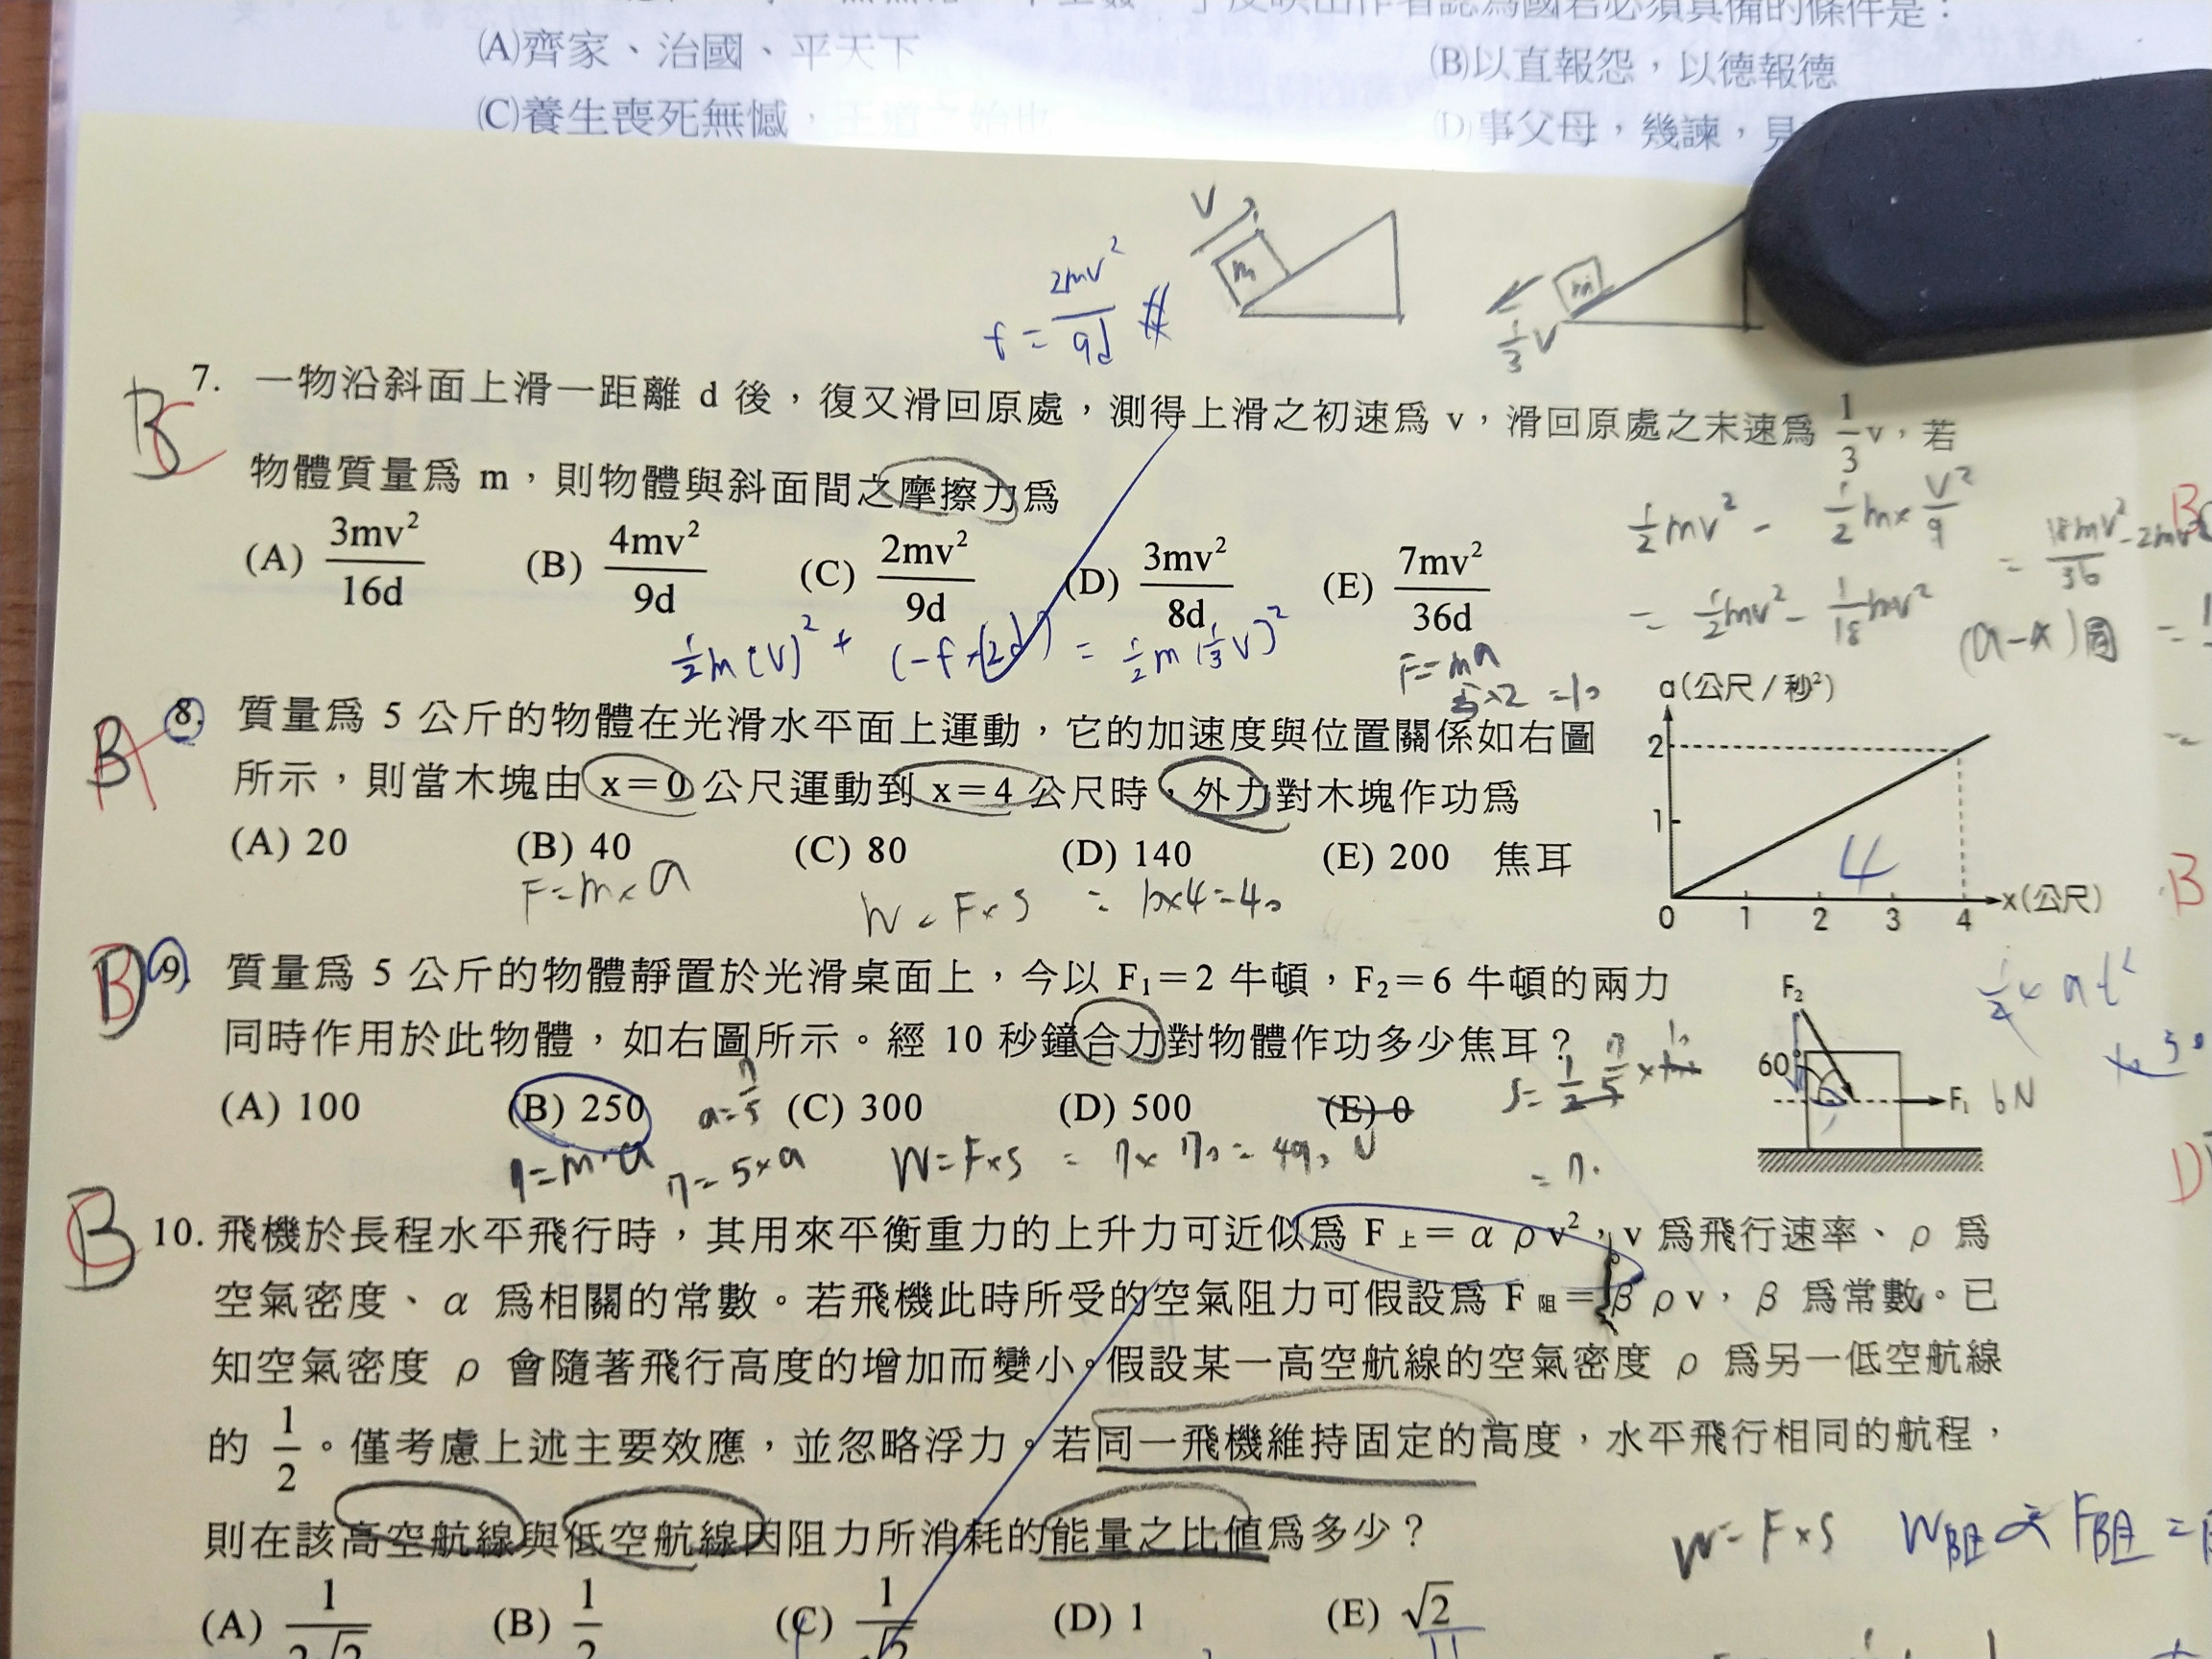 (A)齊家、治國、平天下
(B)以直報怨，以德報德
(C)養生喪死無憾，王道之始也
(D)事父母，幾諫，見
V
m
m
1/3 V
f = 2mv²/9d #
BC
7. 一物沿斜面上滑一距離 d 後，復又滑回原處，測得上滑之初速爲 v，滑回原處之末速爲 1/3 v，若
物體質量爲 m，則物體與斜面間之摩擦力爲
(A) 3mv²/16d (B) 4mv²/9d (C) 2mv²/9d (D) 3mv²/8d (E) 7mv²/36d
1/2 m(v)² + (-f×2d) = 1/2 m(1/3 v)²
1/2 mv² - 1/2 m× v²/9
= 1/2 mv² - 1/18 mv²
F=ma
5×2=10
B A
8. 質量爲 5 公斤的物體在光滑水平面上運動，它的加速度與位置關係如右圖
所示，則當木塊由 x=0 公尺運動到 x=4 公尺時，外力對木塊作功爲
(A) 20 (B) 40 (C) 80 (D) 140 (E) 200 焦耳
F=m×a
W=F×S = 10×4=40
a(公尺/秒²)
2
1
4
0 1 2 3 4 x(公尺)
B
9. 質量爲 5 公斤的物體靜置於光滑桌面上，今以 F₁=2 牛頓，F₂=6 牛頓的兩力
同時作用於此物體，如右圖所示。經 10 秒鐘合力對物體作功多少焦耳？
(A) 100 (B) 250 (C) 300 (D) 500 (E) 0
a=7/5
7=5×a
W=F×S = 7×70=490
F₂
60°
F₁ 6N
1/2 × at²
B C
10. 飛機於長程水平飛行時，其用來平衡重力的上升力可近似爲 F上=αρv²，v 爲飛行速率、ρ 爲
空氣密度、α 爲相關的常數。若飛機此時所受的空氣阻力可假設爲 F阻=βρv，β 爲常數。已
知空氣密度 ρ 會隨著飛行高度的增加而變小。假設某一高空航線的空氣密度 ρ 爲另一低空航線
的 1/2。僅考慮上述主要效應，並忽略浮力。若同一飛機維持固定的高度，水平飛行相同的航程，
則在該高空航線與低空航線因阻力所消耗的能量之比值爲多少？
W=F×S W阻 ∝ F阻 =
(A) 1/2√2 (B) 1/2 (C) 1/√2 (D) 1 (E) √2